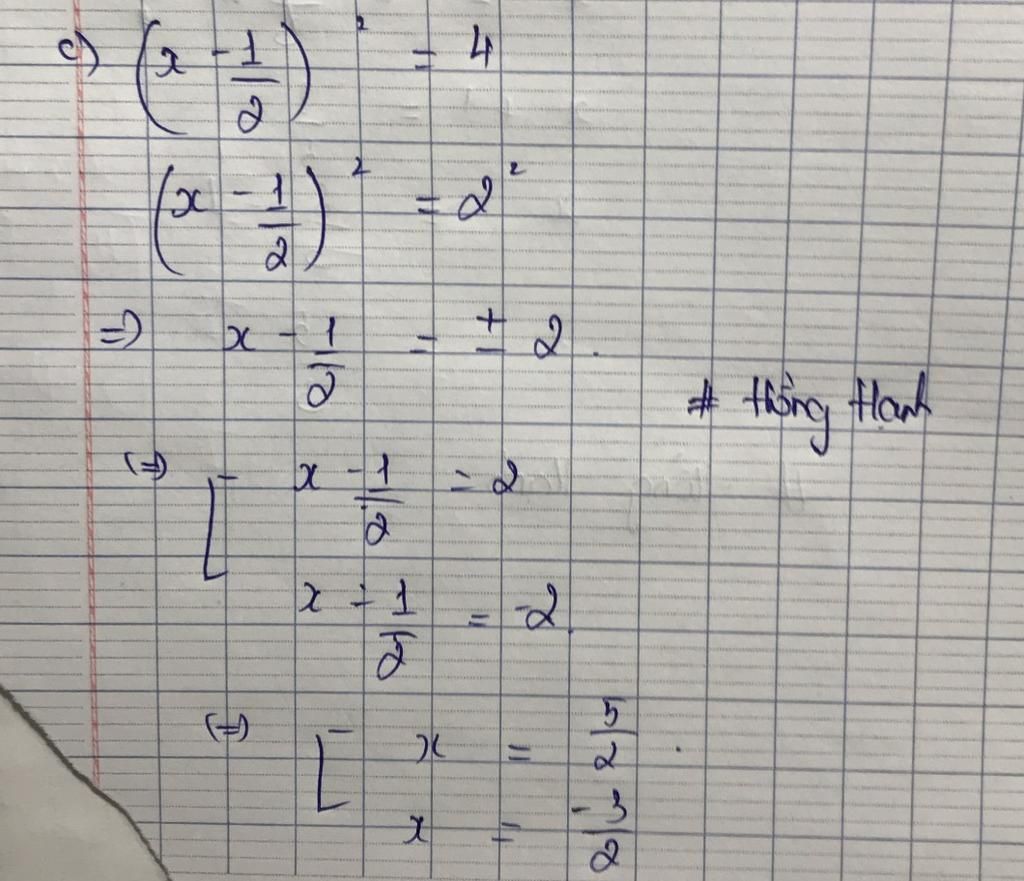 c) (x - 1/2)² = 4
(x - 1/2)² = 2²
=> x - 1/2 = ± 2.
# Hồng Hạnh
(=) [ x - 1/2 = 2
x - 1/2 = -2.
(=) [ x = 5/2.
x = -3/2